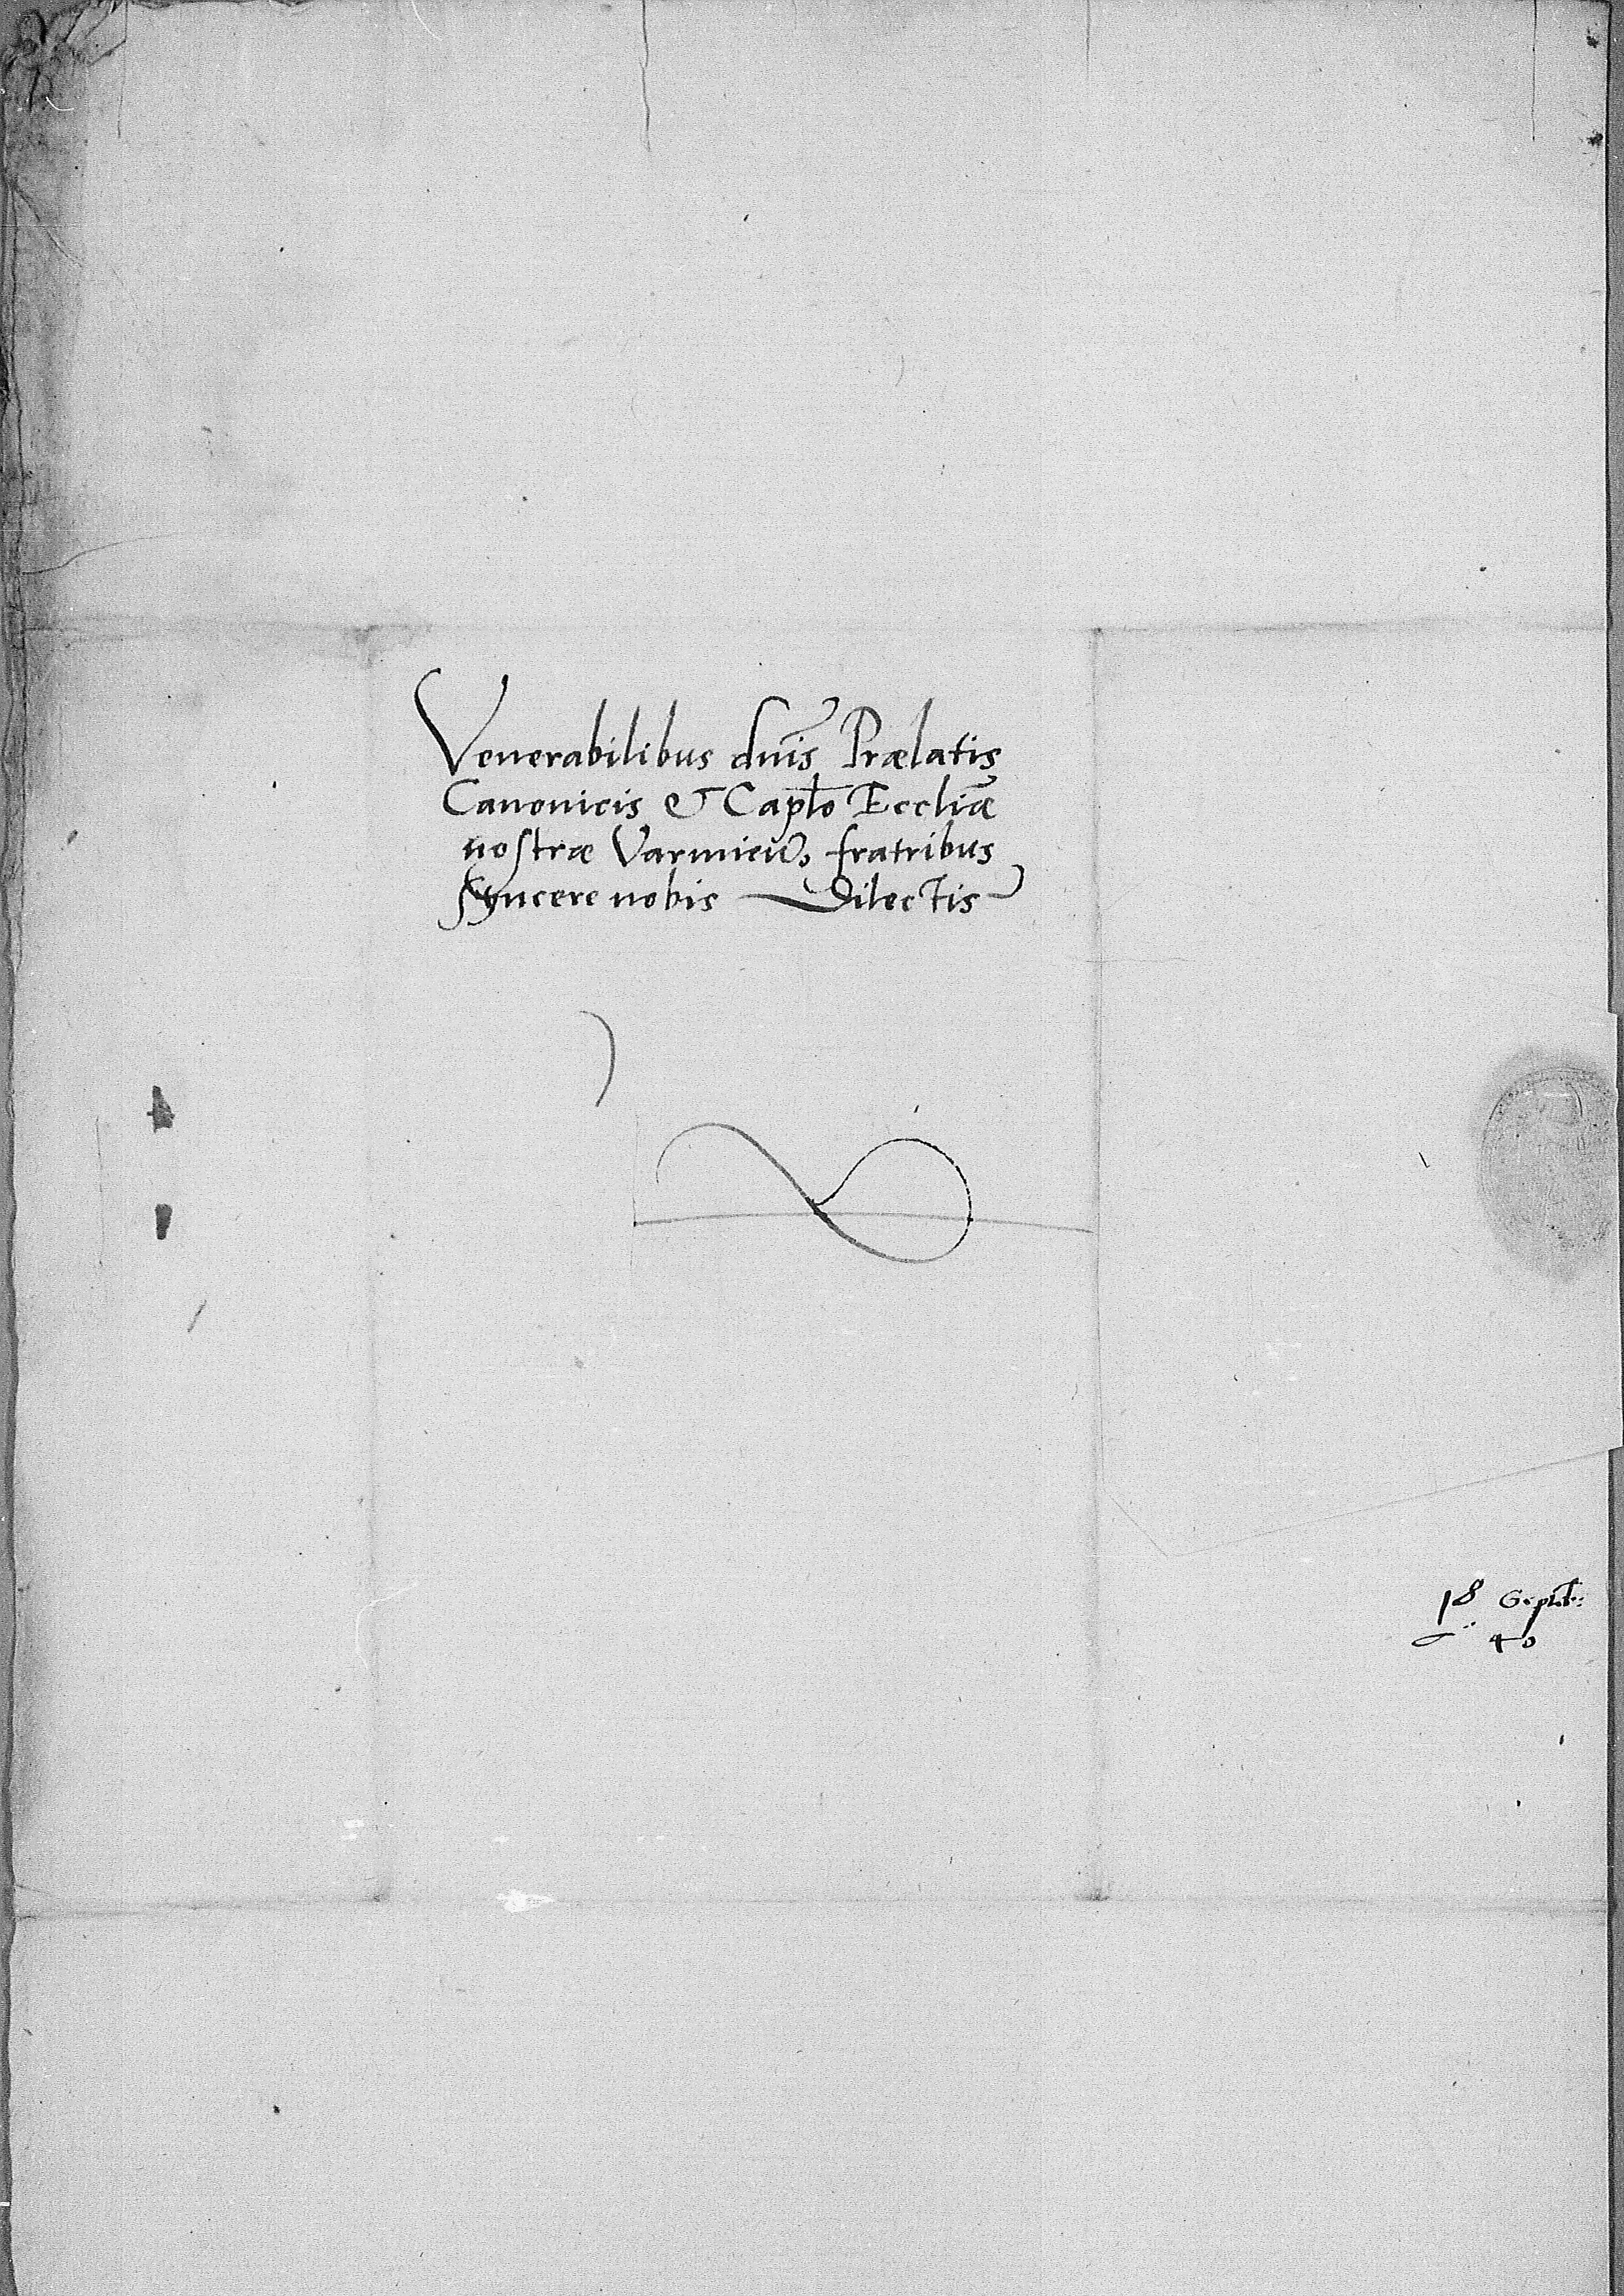 Venerabilibus dnis Prælatis
Canonicis & Caplo Eccliæ
nostræ Varmien, fratribus
syncere nobis Dilectis
18 Septb:
40